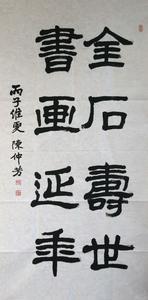 金石壽世
書画延年
丙子維夏 陳仲芳